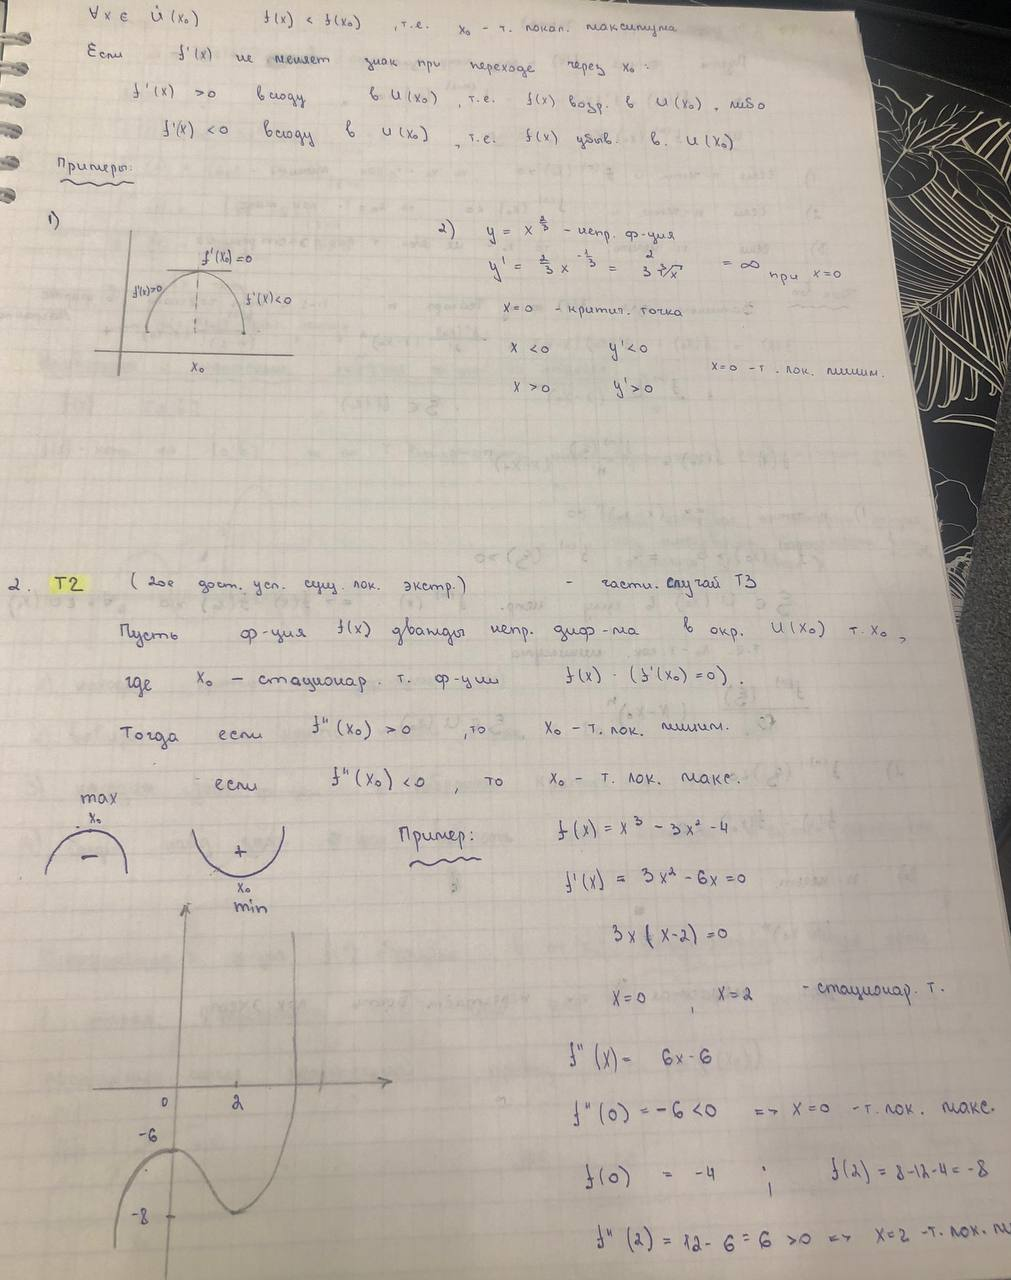 ∀x ∈ U̇(x₀) f(x) < f(x₀) , т.е. x₀ - т. локал. максимума
Если f'(x) не меняет знак при переходе через x₀:
f'(x) >0 всюду в U(x₀) , т.е. f(x) возр. в U(x₀) , либо
f'(x) <0 всюду в U(x₀) , т.е. f(x) убыв. в. U(x₀)
Примеры:
1)
f'(x₀)=0
f'(x)>0
f'(x)<0
x₀
2) y = x^(2/3) - непр. ф-ция
y' = 2/3 x^(-1/3) = 2/(3∛x) = ∞ при x=0
x=0 - критич. точка
x <0 y'<0
x=0 - т. лок. миним.
x >0 y'>0
2. T2 (2ое дост. усл. сущ. лок. экстр.) - частн. случай T3
Пусть ф-ция f(x) дважды непр. диф-ма в окр. U(x₀) т. x₀ ,
где x₀ - стационар. т. ф-ции f(x) · (f'(x₀) =0) .
Тогда если f''(x₀) >0 , то x₀ - т. лок. миним.
если f''(x₀) <0 , то x₀ - т. лок. макс.
max
x₀
-
+
x₀
min
0
2
-6
-8
Пример: f(x) = x³ - 3x² - 4
f'(x) = 3x² - 6x = 0
3x(x-2) = 0
x=0 , x=2 - стационар. т.
f''(x) = 6x-6
f''(0) = -6 <0 => x=0 - т. лок. макс.
f(0) = -4 ; f(2) = 8-12-4 = -8
f''(2) = 12- 6 = 6 >0 => x=2 - т. лок.